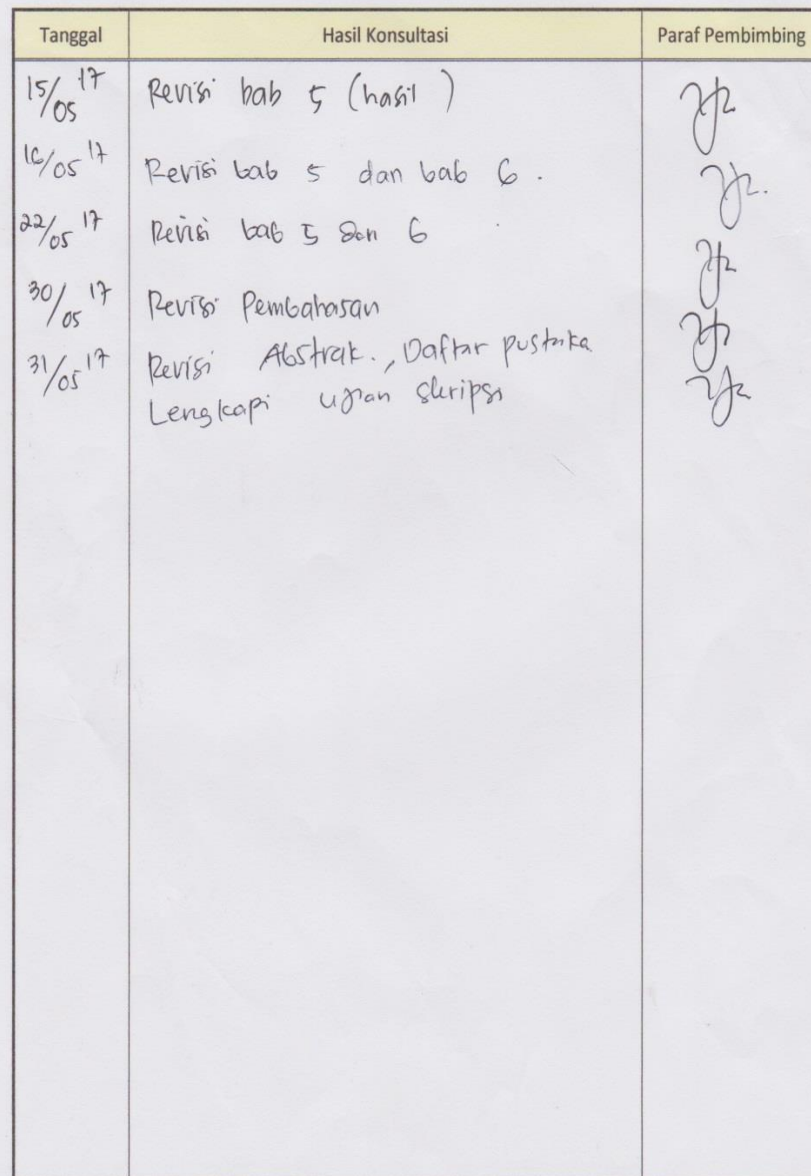 Tanggal Hasil Konsultasi Paraf Pembimbing
15/05 17 Revisi bab 5 (hasil)
16/05 17 Revisi bab 5 dan bab 6.
22/05 17 Revisi bab 5 dan 6
30/05 17 Revisi Pembahasan
31/05 17 Revisi Abstrak., Daftar pustaka
Lengkapi ujian skripsi